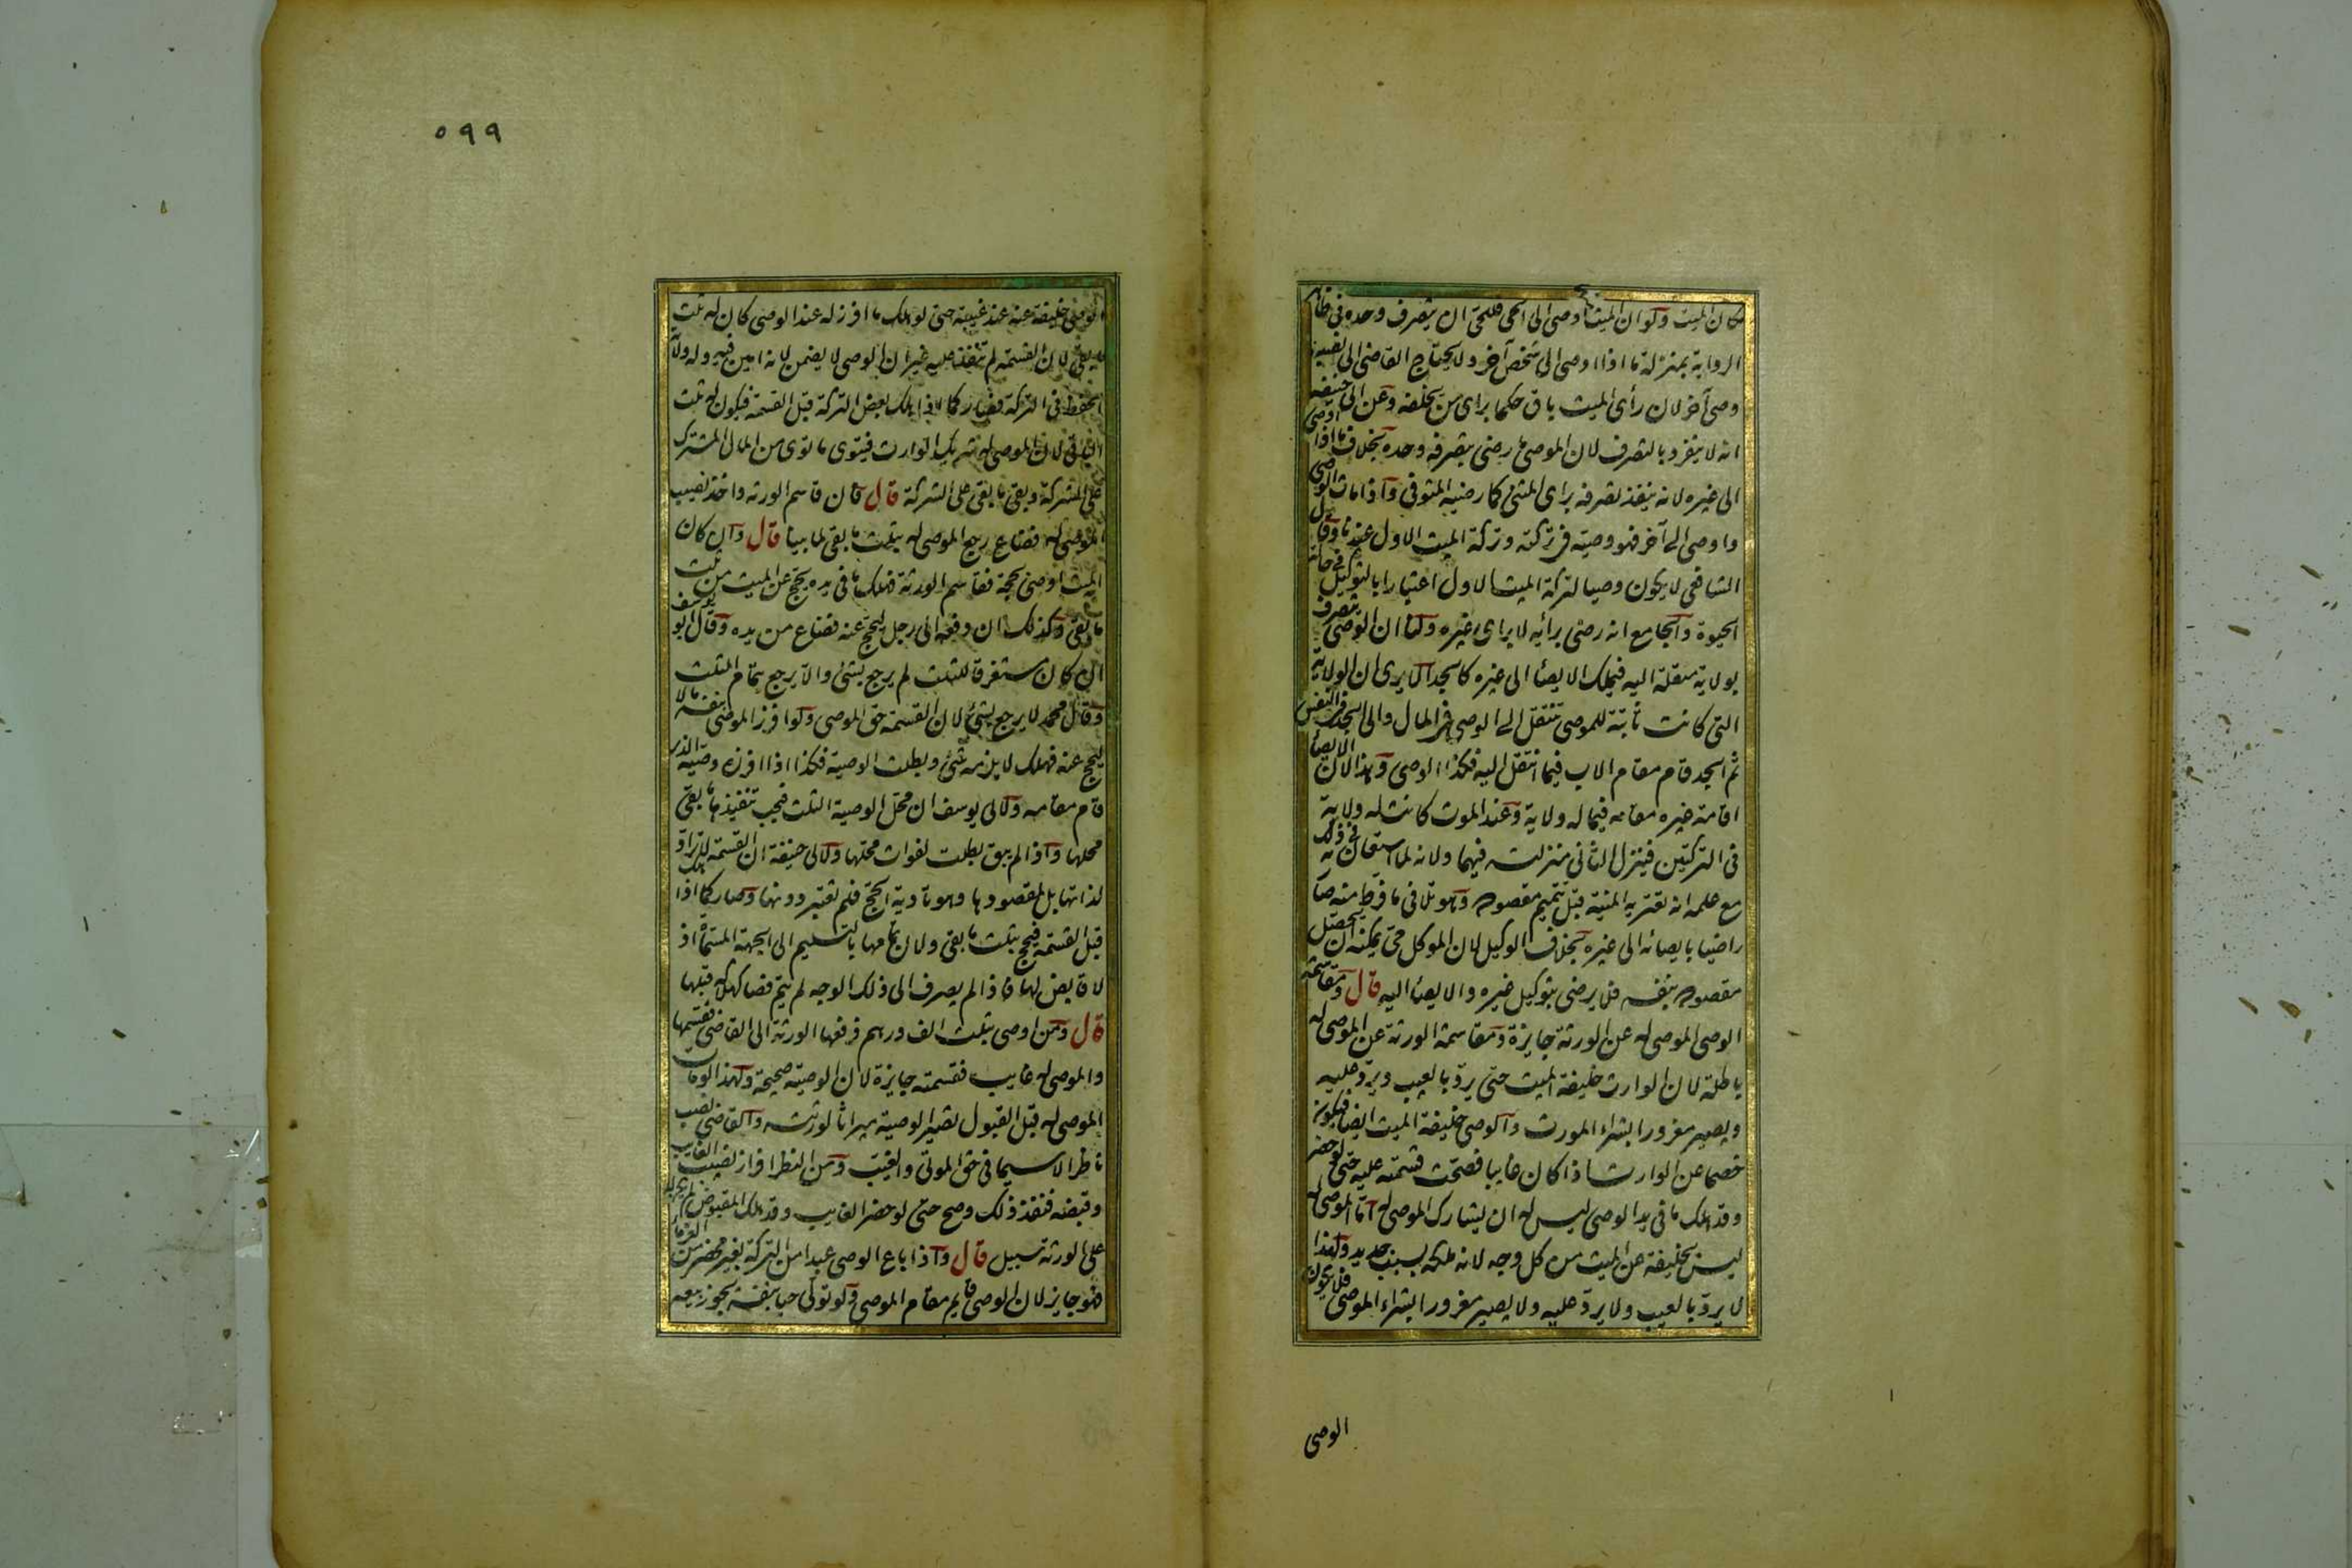 مكان الميت ولو ان الميت اوصى الى الحى فللحى ان يتصرف وحده فى ظاهر
الرواية بمنزلة ما اذا اوصى الى شخص آخر ولا يحتاج القاضى الى نصب
وصى آخر لان رأى الميت باق حكما براى من يخلفه وعن ابى حنيفه
انه لا ينفرد بالتصرف لان الموصى ما رضى بتصرفه وحده بخلاف ما اذا اوصى
الى غيره لانه ينفذ تصرفه براى المثنى كما رضيه المتوفى واذا مات الوصى
واوصى الى آخر فهو وصيه فى تركته وتركة الميت الاول عندنا وقال
الشافعى لا يكون وصيا لتركة الميت الاول اعتبارا بالتوكيل فى حالة
الحيوة والجامع انه رضى برأيه لا براى غيره ولنا ان الوصى يتصرف
بولاية منتقلة اليه فيملك الايصاء الى غيره كالجد الا يرى ان الولاية
التى كانت ثابتة للموصى تنتقل الى الوصى فى المال والى الجد فى النفس
ثم الجد قام مقام الاب فيما انتقل اليه فكذا الوصى وهذا لان الايصاء
اقامة غيره مقامه فيما له ولاية وعند الموت كانت له ولاية
فى التركتين فينزل الثانى منزلته فيهما ولانه لما استعان به فى ذلك
مع علمه انه تعتريه المنية قبل تتميم مقصوده وهو تلافى ما فرط منه صار
راضيا بايصائه الى غيره بخلاف الوكيل لان الموكل حى يمكنه ان يحصل
مقصوده بنفسه فلا يرضى بتوكيل غيره والايصاء اليه قال ومقاسمة
الوصى الموصى له عن الورثة جايزة ومقاسمة الورثة عن الموصى له
باطلة لان الوارث خليفة الميت حتى يرد بالعيب ويرد عليه
ويصير مغرورا بشراء المورث والوصى خليفة الميت ايضا فيكون
خصما عن الوارث اذا كان غايبا فصحت قسمته عليه حتى لو حضر
وقد هلك ما فى يد الوصى ليس له ان يشارك الموصى له اما الموصى له
ليس بخليفة عن الميت من كل وجه لانه ملكه بسبب جديد ولهذا
لا يرد بالعيب ولا يرد عليه ولا يصير مغرورا بشراء الموصى فلا يكون
الوصى
٥٩٩
الوصى خليفة عنه عند غيبته حتى لو هلك ما افرز له عند الوصى كان له ثلث
ما بقى لان القسمة لم تنفذ عليه غير ان الوصى لا يضمن لانه امين فيه وله ولاية
الحفظ فى التركة فصار كما اذا هلك بعض التركة قبل القسمة فيكون له ثلث
الباقى لان الموصى له شريك الوارث فيتوى ما توى من المال المشترك
على الشركة ويبقى ما بقى على الشركة قال فان قاسم الورثه واخذ نصيب
الموصى له فضاع رجع الموصى له بثلث ما بقى لما بينا قال وان كان
الميت اوصى بحجة فقاسم الورثة فهلك ما فى يده يحج عن الميت من ثلث
ما بقى وكذلك ان دفعه الى رجل ليحج عنه فضاع من يده وقال ابو يوسف
ان كان مستغرقا للثلث لم يرجع بشئ والا يرجع بتمام الثلث
وقال محمد لا يرجع بشئ لان القسمة حق الموصى ولو افرز الموصى بنفسه مالا
ليحج عنه فهلك لا يلزمه شئ وبطلت الوصية فكذا اذا افرزه وصيه الذى
قام مقامه ولابى يوسف ان محل الوصية الثلث فيجب تنفيذها ما بقى
محلها واذا لم يبق بطلت لفوات محلها ولابى حنيفة ان القسمة لا تراد
لذاتها بل لمقصودها وهو تادية الحج فلم تعتبر دونها وصار كما اذا هلك
قبل القسمة فيحج بثلث ما بقى ولان تمامها بالتسليم الى الجهة المسماة اذ
لا قابض لها فاذا لم يصرف الى ذلك الوجه لم يتم فصار كهلاكه قبلها
قال ومن اوصى بثلث الف درهم فدفعها الورثة الى القاضى فقسمها
والموصى له غايب فقسمته جايزة لان الوصية صحيحة ولهذا لو مات
الموصى له قبل القبول تصير الوصية ميراثا لورثته والقاضى نصب
ناظرا لا سيما فى حق الموتى والغيب ومن النظر افراز نصيب الغايب
وقبضه فنفذ ذلك وصح حتى لو حضر الغايب وقد هلك المقبوض لم يكن له
على الورثة سبيل قال واذا باع الوصى عبدا من التركة بغير محضر من الغرماء
فهو جايز لان الوصى قايم مقام الموصى ولو تولى حيا بنفسه يجوز بيعه